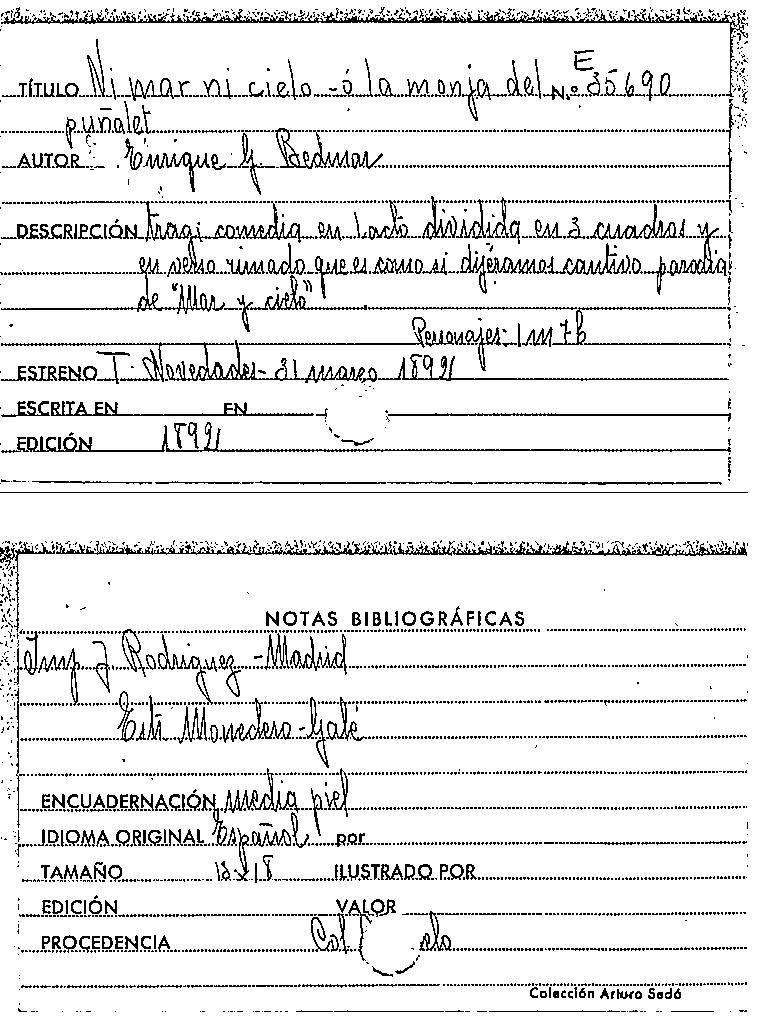 E
TÍTULO Ni mar ni cielo - ó la monja del N.º 35690
puñalet
AUTOR Enrique G. Bedmar
DESCRIPCIÓN tragi comedia en 1 acto dividida en 3 cuadros y
en verso rimado que es como si dijéramos cautivo parodia
de "Mar y cielo"
Personajes: 1 m 7 h
ESTRENO T. Novedades - 31 marzo 1891
ESCRITA EN EN
EDICIÓN 1891
NOTAS BIBLIOGRÁFICAS
Imp J Rodriguez - Madrid
Monedero - Galé
ENCUADERNACIÓN media piel
IDIOMA ORIGINAL Español por
TAMAÑO 13 x 18 ILUSTRADO POR
EDICIÓN VALOR
PROCEDENCIA Col
Colección Arturo Sedó